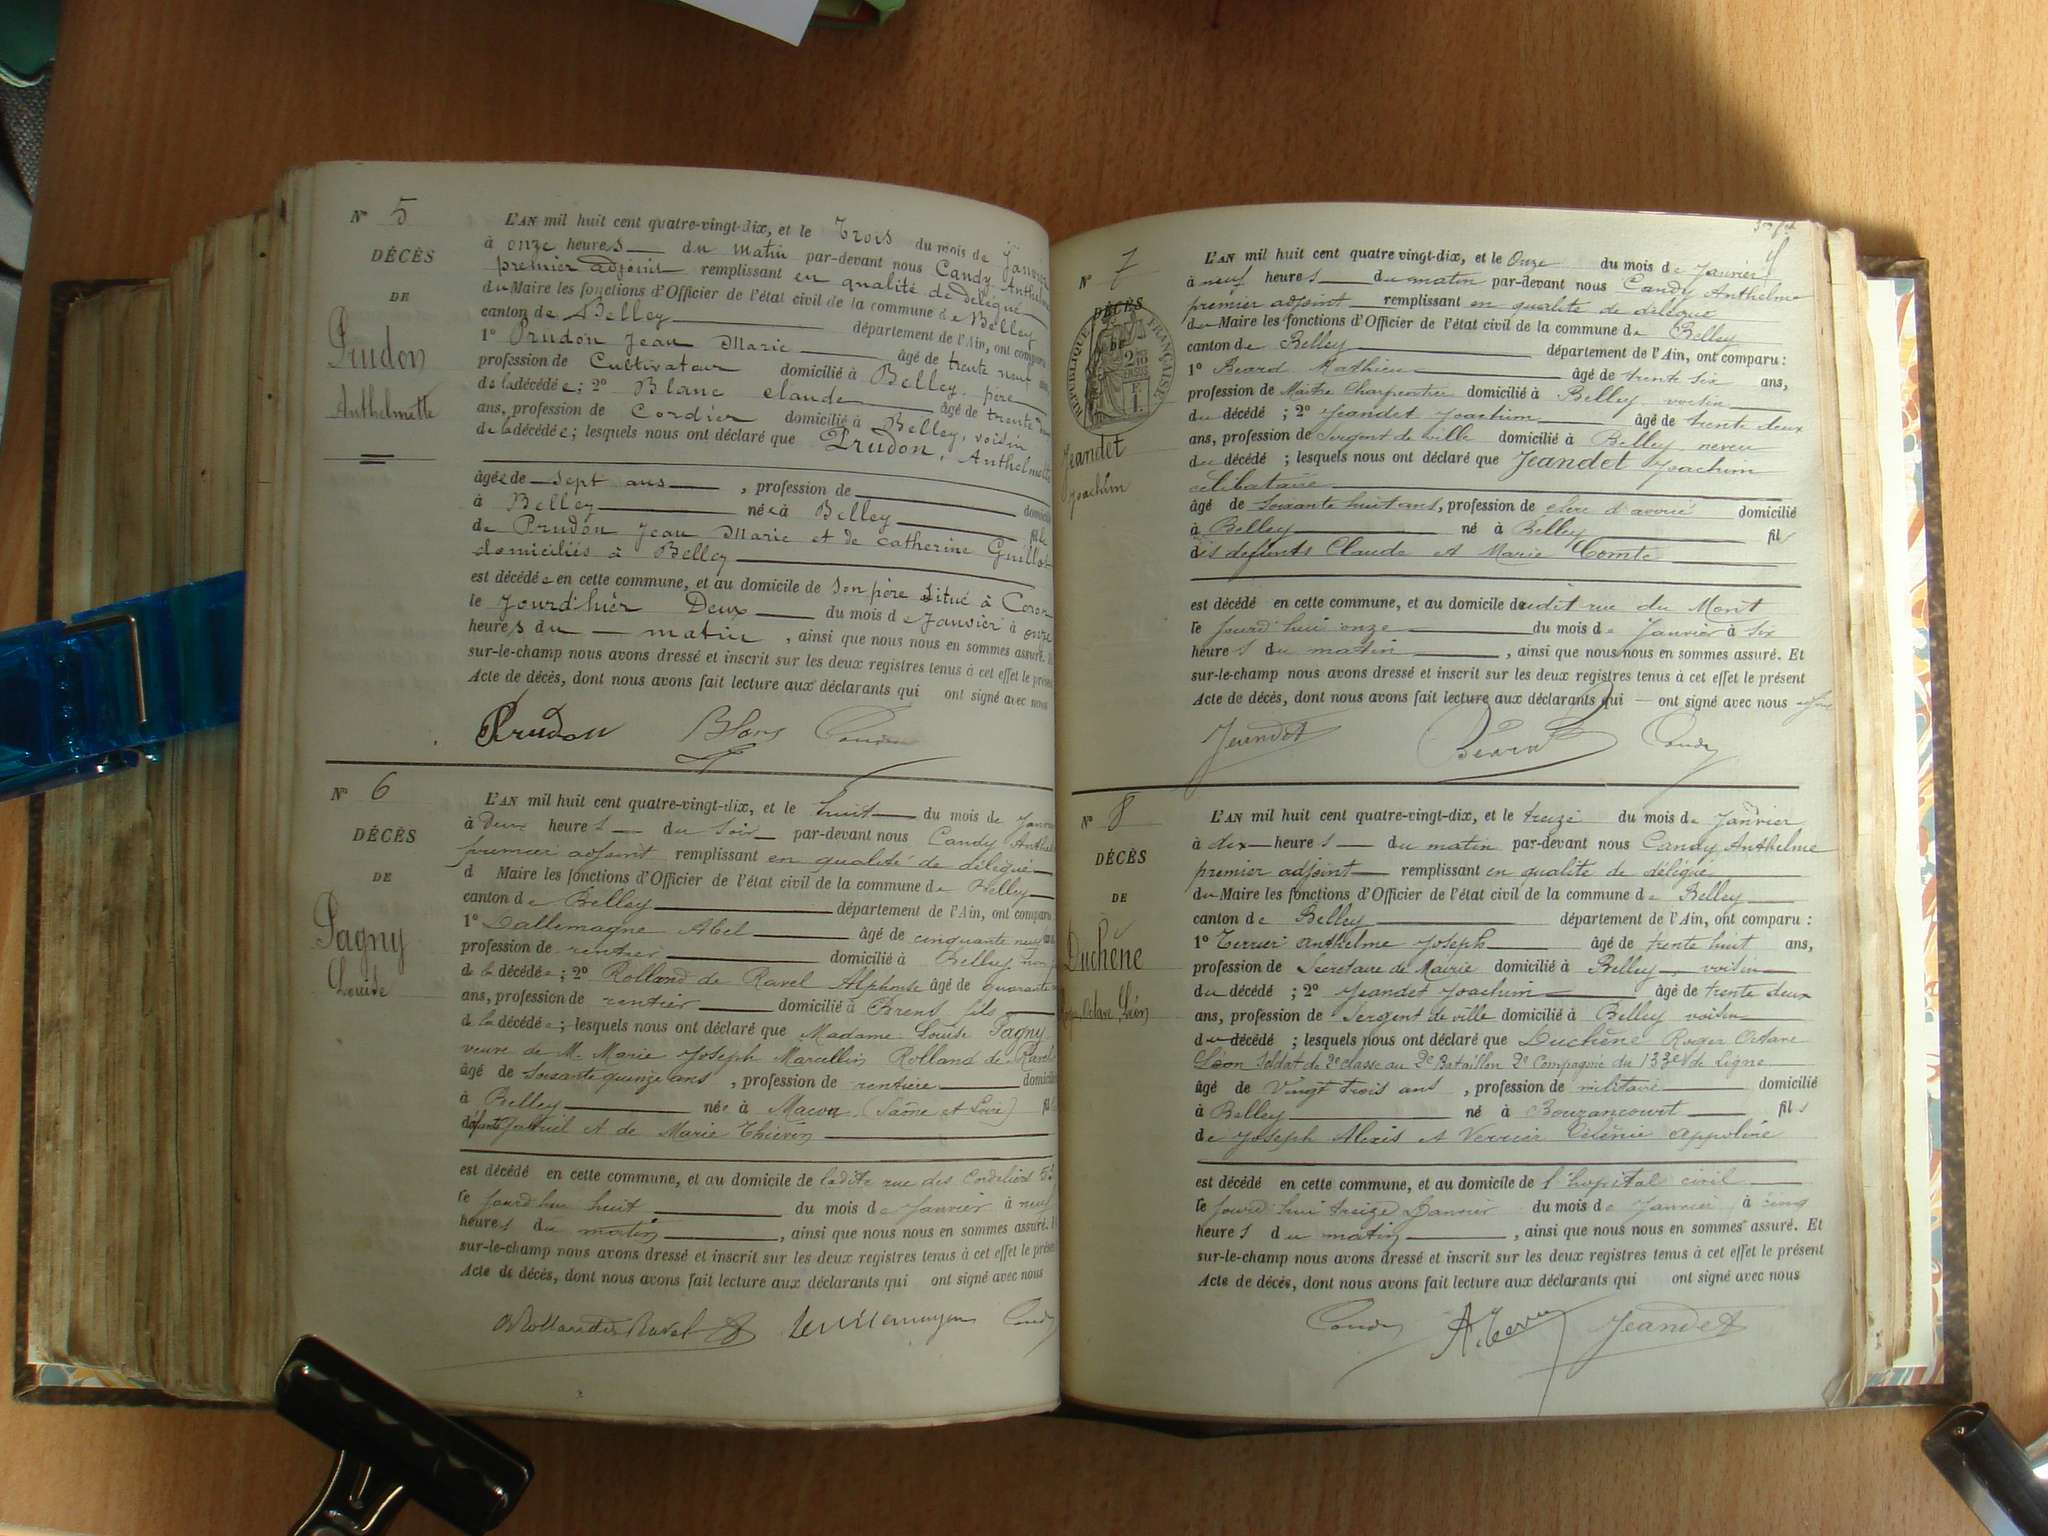 Nº 5
DÉCÈS
DE
Prudon
Anthelmette
L'AN mil huit cent quatre-vingt-dix, et le Trois du mois de Janvier
à onze heures du matin par-devant nous Candy Anthelme
premier adjoint remplissant en qualité de délégué
du Maire les fonctions d'Officier de l'état civil de la commune de Belley
canton de Belley département de l'Ain, ont comparu
1º Prudon Jean Marie âgé de trente neuf ans
profession de Cultivateur domicilié à Belley, père
de la décédée; 2º Blanc claude âgé de trente
ans, profession de Cordier domicilié à Belley, voisin
de la décédée; lesquels nous ont déclaré que Prudon, Anthelmette
âgée de sept ans, profession de domicilié
à Belley née à Belley fille
de Prudon Jean Marie et de catherine Guillot
domiciliés à Belley
est décédée en cette commune, et au domicile de son père situé à Coron
le jourd'hier Deux du mois de Janvier à onze
heures du matin, ainsi que nous nous en sommes assuré.
sur-le-champ nous avons dressé et inscrit sur les deux registres tenus à cet effet le présent
Acte de décès, dont nous avons fait lecture aux déclarants qui ont signé avec nous
Prudon Blanc Candy
Nº 6
DÉCÈS
DE
Pagny
Louise
L'AN mil huit cent quatre-vingt-dix, et le huit du mois de Janvier
à Deux heures du soir par-devant nous Candy Anthelme
premier adjoint remplissant en qualité de délégué
d Maire les fonctions d'Officier de l'état civil de la commune de Belley
canton de Belley département de l'Ain, ont comparu
1º Dallemagne Abel âgé de cinquante neuf ans
profession de rentier domicilié à Belley non
de la décédée; 2º Rolland de Ravel Alphonse âgé de quarante
ans, profession de rentier domicilié à Brens fils
de la décédée; lesquels nous ont déclaré que Madame Louise Pagny
veuve de M. Marie Joseph Marcellin Rolland de Ravel
âgé de soixante quinze ans, profession de rentière domicilié
à Belley née à Macon (Saône et Loire)
et de Marie Thierin
est décédé en cette commune, et au domicile de ladite rue des Cordeliers
le jourd'hui huit du mois de Janvier à neuf
heures du matin, ainsi que nous nous en sommes assuré.
sur-le-champ nous avons dressé et inscrit sur les deux registres tenus à cet effet le présent
Acte de décès, dont nous avons fait lecture aux déclarants qui ont signé avec nous
Rolland de Ravel Candy
Nº 7
DÉCÈS
DE
RÉPUBLIQUE FRANÇAISE
Jeandet
Joachim
L'AN mil huit cent quatre vingt-dix, et le Onze du mois de Janvier
à neuf heures du matin par-devant nous Candy Anthelme
prémier adjoint remplissant en qualité de délégué
du Maire les fonctions d'Officier de l'état civil de la commune de Belley
canton de Belley département de l'Ain, ont comparu :
1º Béard Mathieu âgé de trente six ans,
profession de Maître Charpentier domicilié à Belley voisin
du décédé ; 2º Jeandet Joachim âgé de trente deux
ans, profession de sergent de ville domicilié à Belley neveu
du décédé ; lesquels nous ont déclaré que Jeandet Joachim
célibataire
âgé de soixante huit ans, profession de clerc d'avoué domicilié
à Belley né à Belley fils
des défunts Claude et Marie Comte
est décédé en cette commune, et au domicile dudit rue du Mont
le jourd'hui onze du mois de Janvier à six
heures du matin, ainsi que nous nous en sommes assuré. Et
sur-le-champ nous avons dressé et inscrit sur les deux registres tenus à cet effet le présent
Acte de décès, dont nous avons fait lecture aux déclarants qui ont signé avec nous
Jeandet Béard Candy
Nº 8
DÉCÈS
DE
Duchêne
Roger, Octave, Léon
L'AN mil huit cent quatre-vingt-dix, et le treize du mois de Janvier
à dix heures du matin par-devant nous Candy Anthelme
premier adjoint remplissant en qualité de délégué
du Maire les fonctions d'Officier de l'état civil de la commune de Belley
canton de Belley département de l'Ain, ont comparu :
1º Terrier anthelme Joseph âgé de trente huit ans,
profession de Secrétaire de Mairie domicilié à Belley voisin
du décédé ; 2º Jeandet Joachim âgé de trente deux
ans, profession de Sergent de ville domicilié à Belley voisin
du décédé ; lesquels nous ont déclaré que Duchêne Roger Octave
Léon Soldat de 2e classe au 2e Bataillon 2e Compagnie du 133e de Ligne
âgé de Vingt trois ans, profession de militaire domicilié
à Belley né à Bouzancourt fils
de Joseph Alexis et Verrier appoline
est décédé en cette commune, et au domicile de l'hopital civil
le jourd'hui treize Janvier du mois de Janvier à cinq
heures du matin, ainsi que nous nous en sommes assuré. Et
sur-le-champ nous avons dressé et inscrit sur les deux registres tenus à cet effet le présent
Acte de décès, dont nous avons fait lecture aux déclarants qui ont signé avec nous
Candy A. Terrier Jeandet